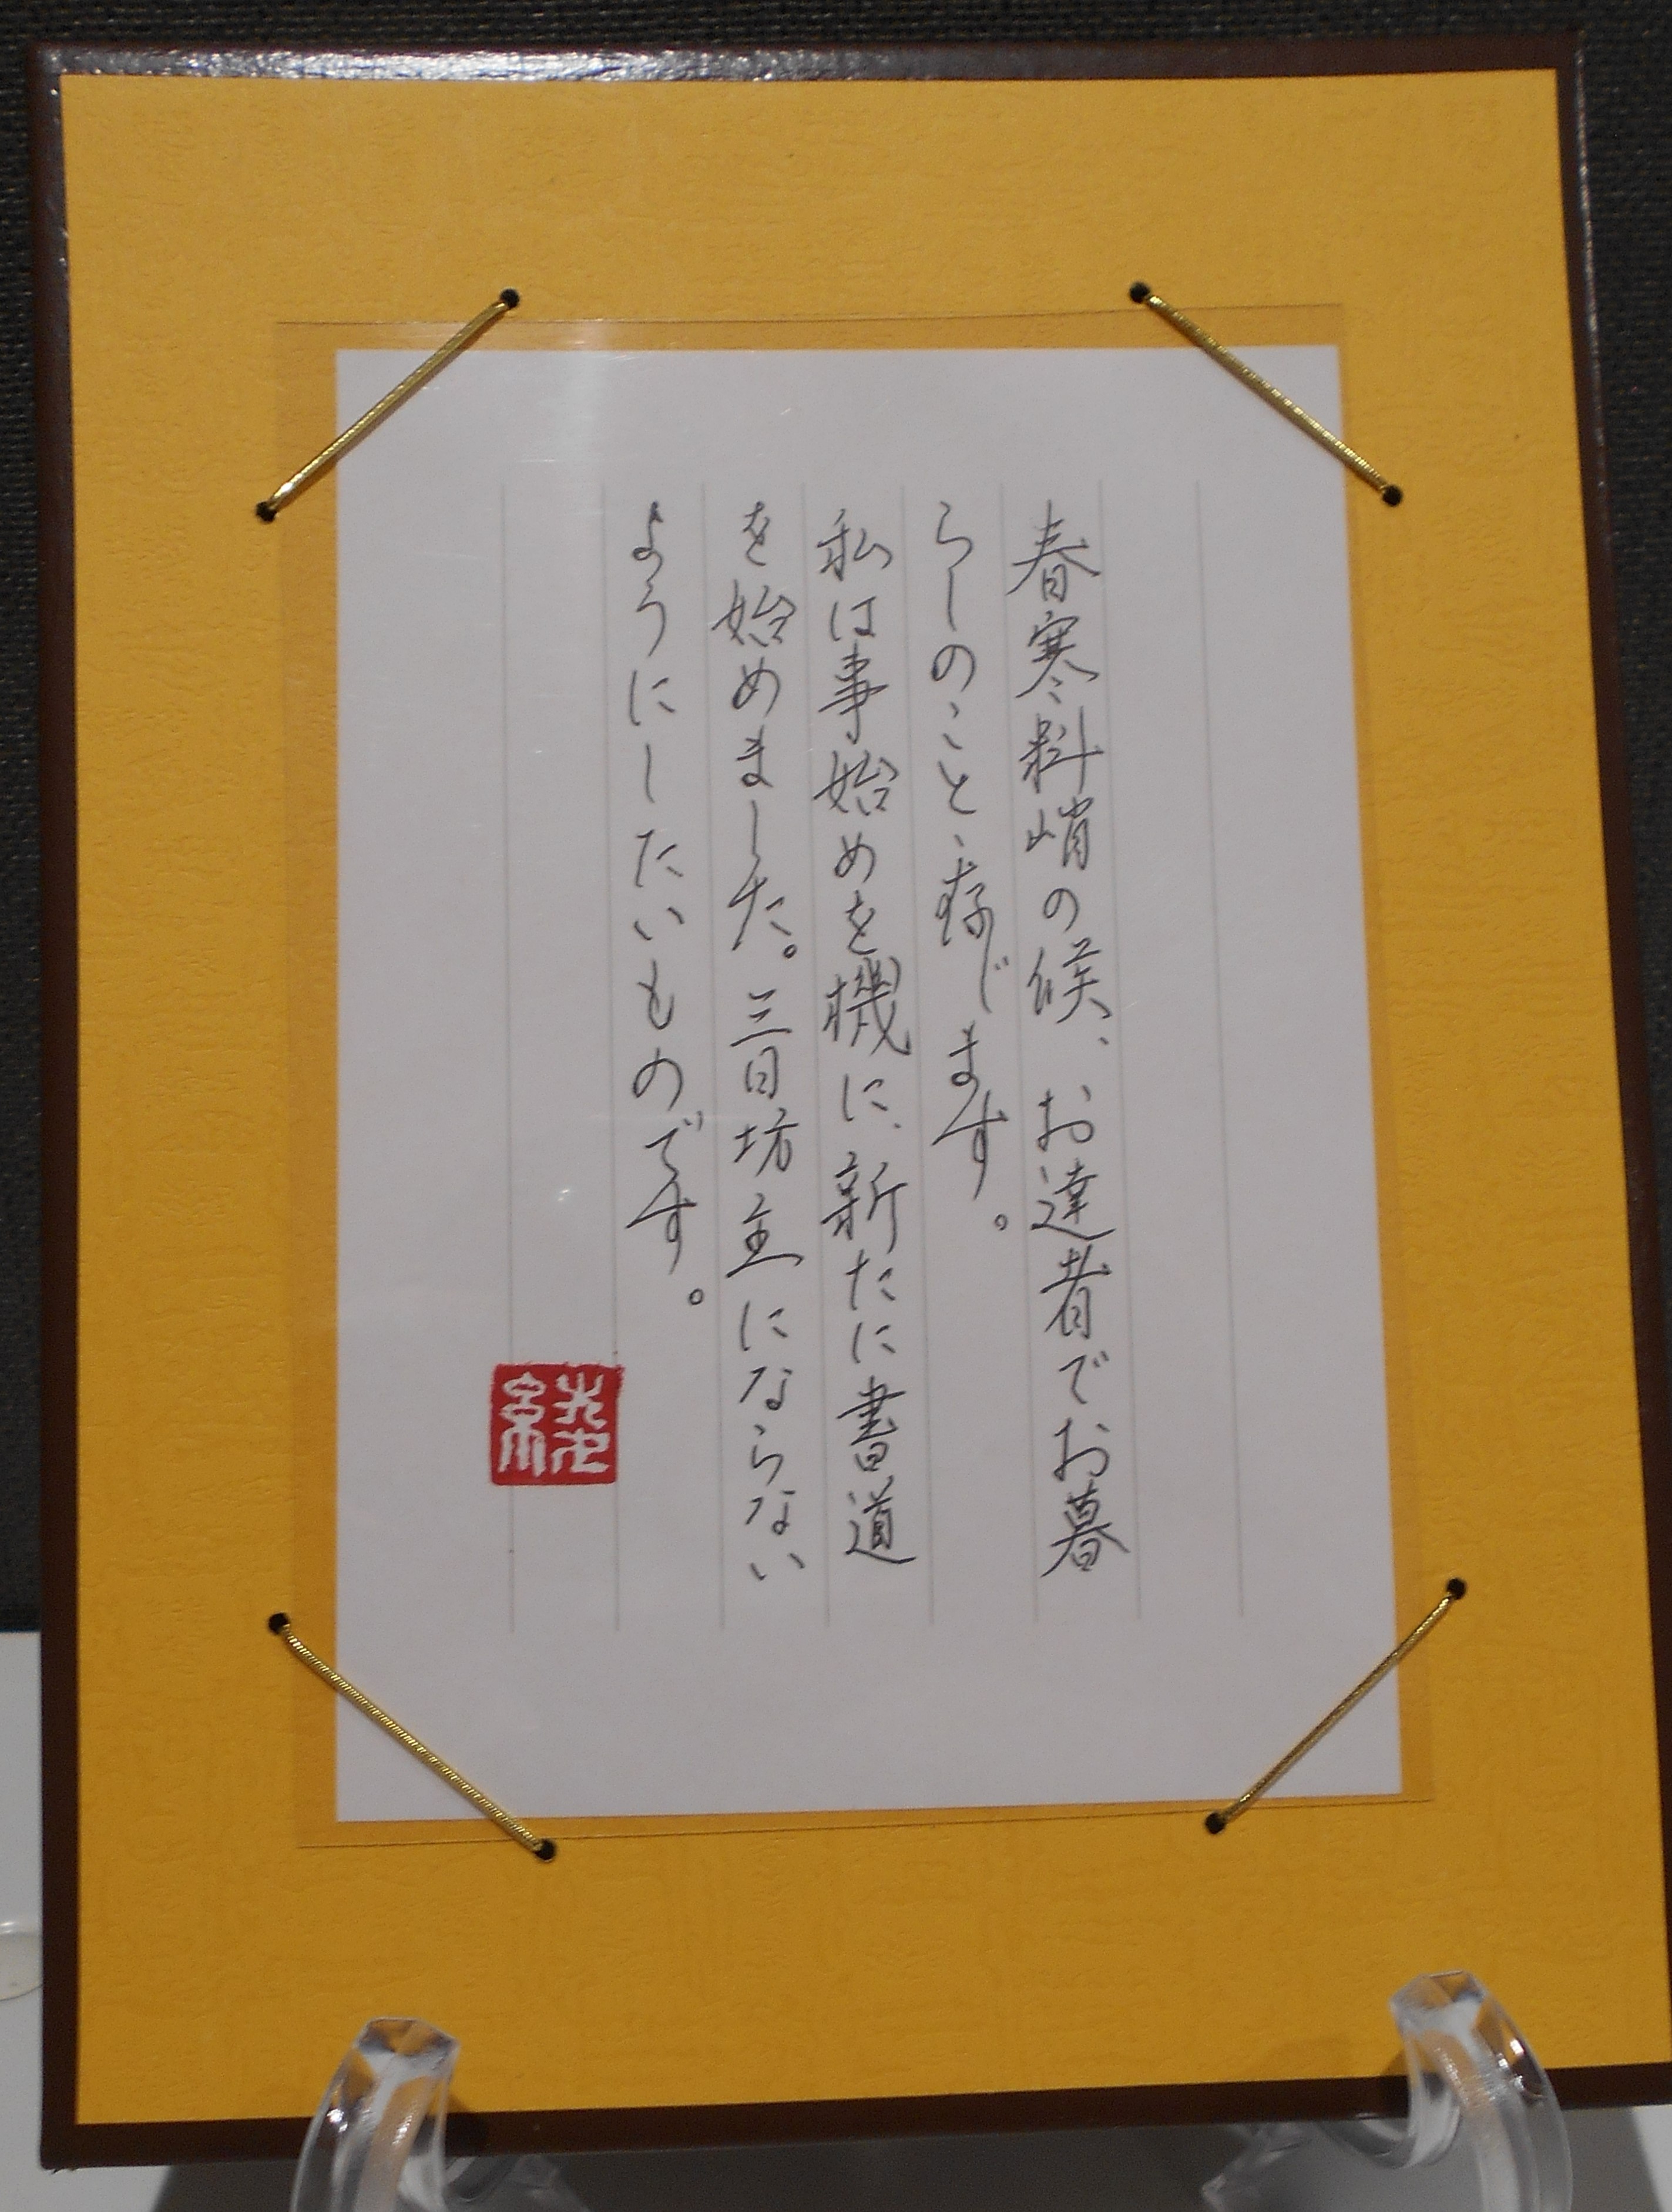 春寒料峭の候、お達者でお暮
らしのこと、存じます。
私は事始めを機に、新たに書道
を始めました。三日坊主にならない
ようにしたいものです。